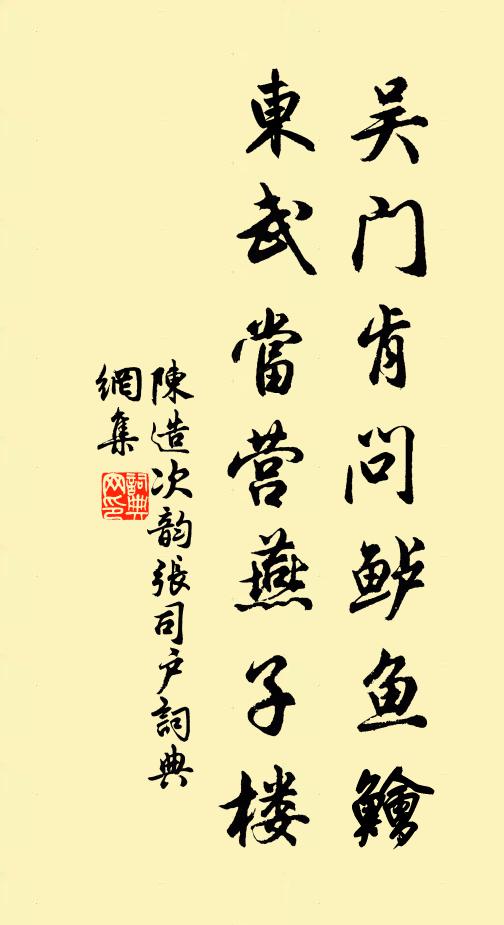 吴门肯问鲈鱼鱠
東武當营燕子楼
陳造次韵張司户詞典
網集
詞典
网印